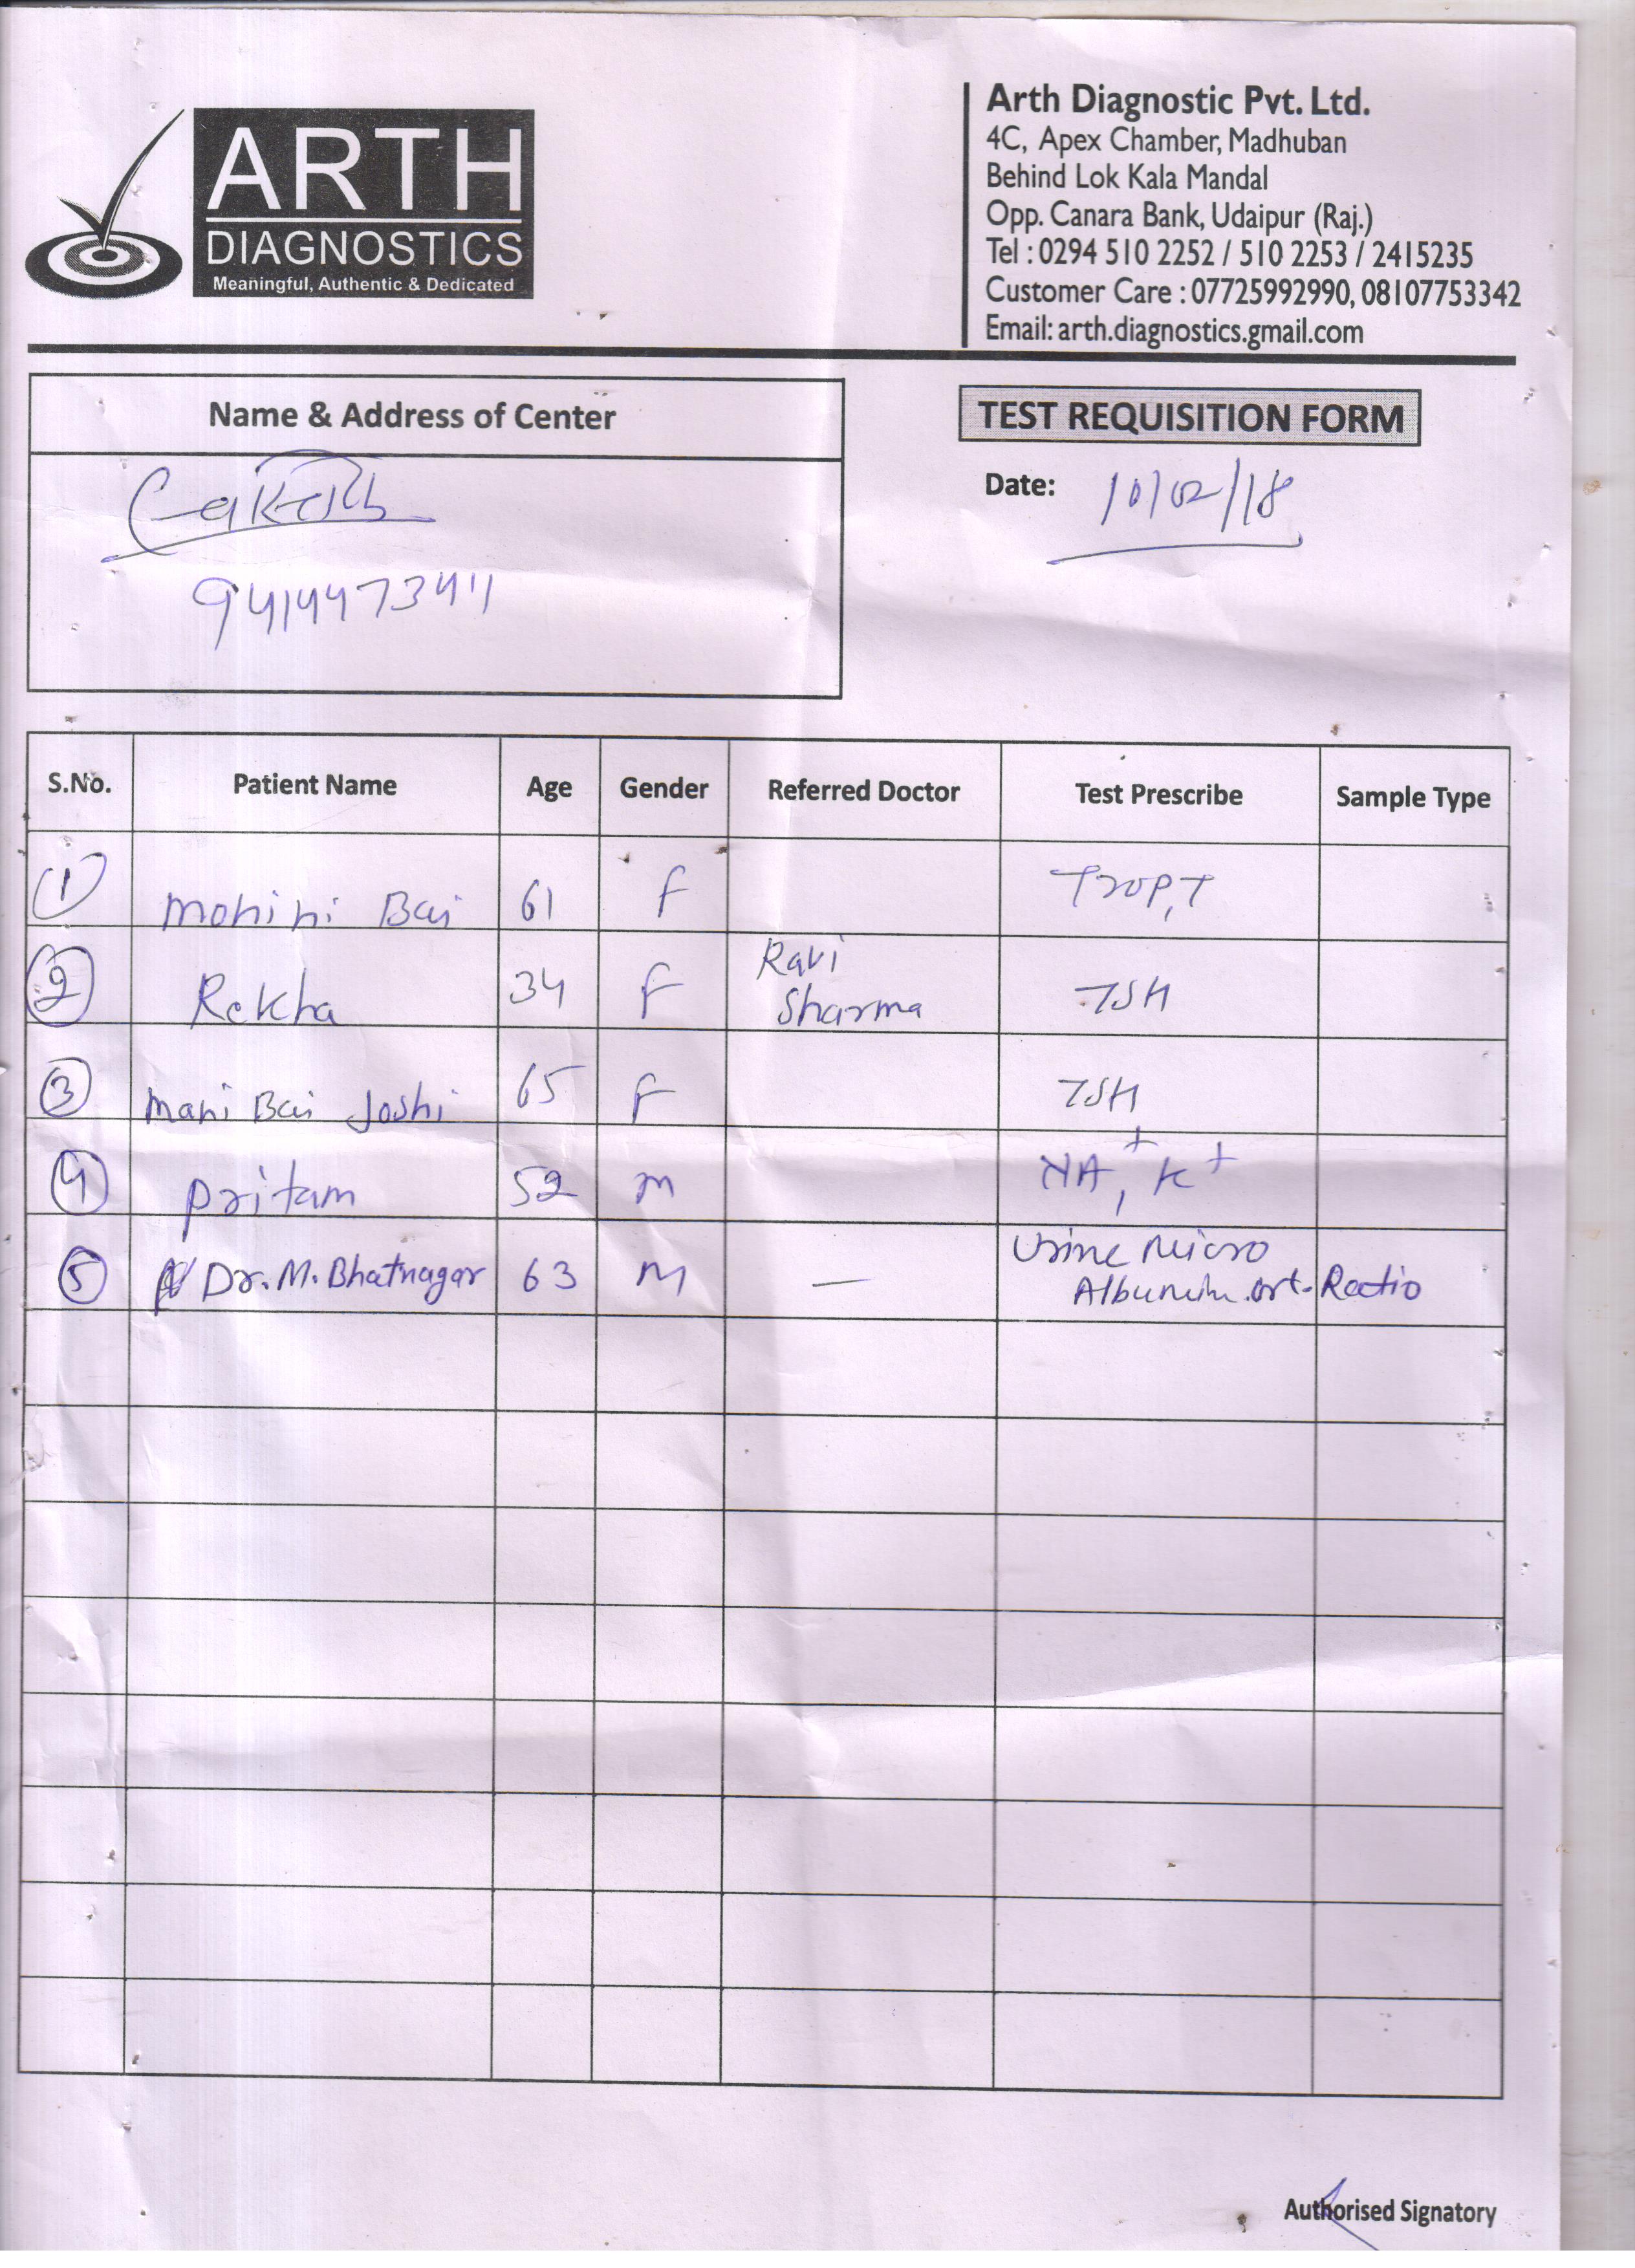 ARTH
DIAGNOSTICS
Meaningful, Authentic & Dedicated
Arth Diagnostic Pvt. Ltd.
4C, Apex Chamber, Madhuban
Behind Lok Kala Mandal
Opp. Canara Bank, Udaipur (Raj.)
Tel : 0294 510 2252 / 510 2253 / 2415235
Customer Care : 07725992990, 08107753342
Email: arth.diagnostics.gmail.com
Name & Address of Center
9414473411
TEST REQUISITION FORM
Date: 10/02/18
S.No. Patient Name Age Gender Referred Doctor Test Prescribe Sample Type
1 Mohini Bai 61 F Trop,T
2 Rekha 34 F Ravi Sharma TSH
3 Mani Bai Joshi 65 F TSH
4 Pritam 52 M NA+, K+
5 Dr. M. Bhatnagar 63 M — Urine Micro
Ratio
Authorised Signatory